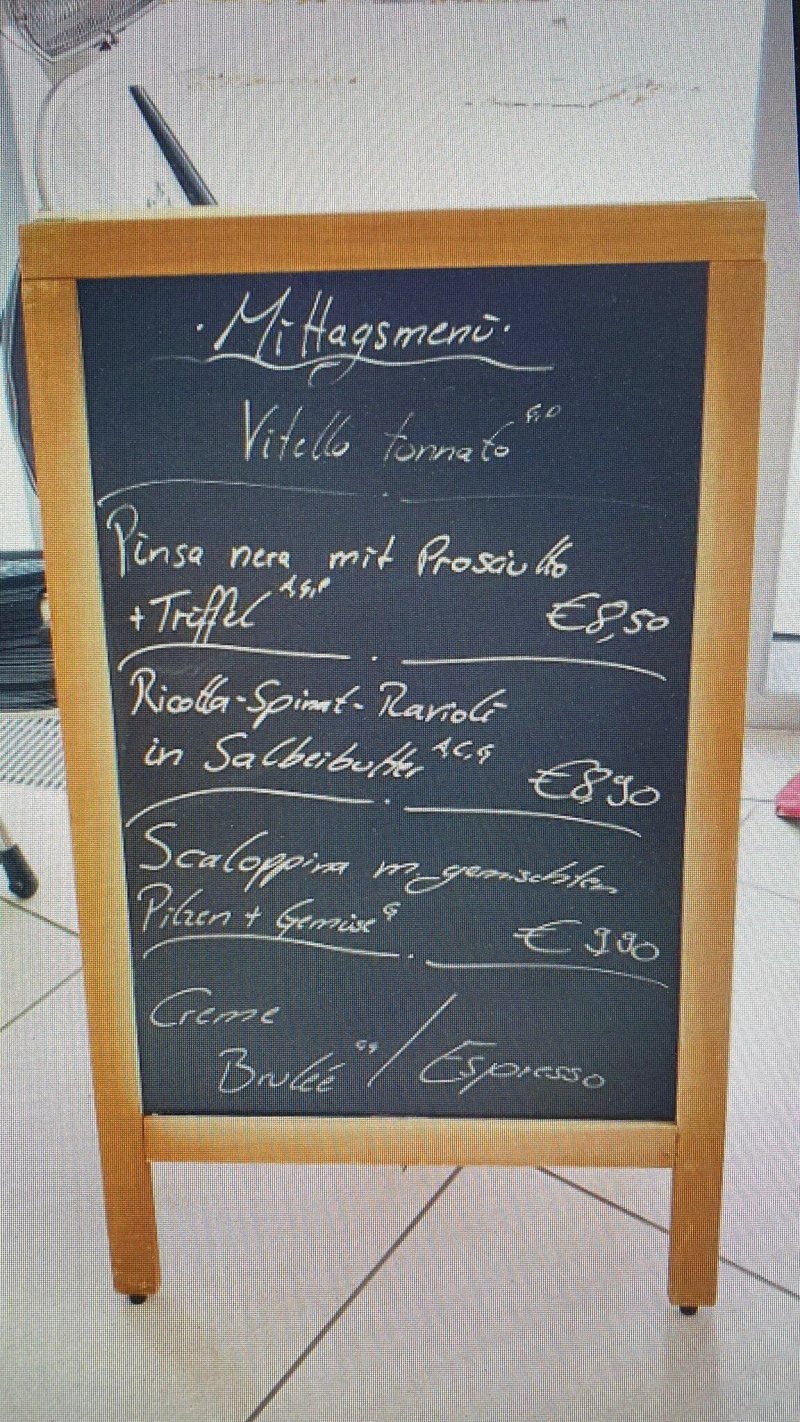 · Mittagsmenü ·
Vitello tonnato G,D
Pinsa nera mit Prosciutto
+ Trüffel A,G,P €8,50
Ricotta-Spinat-Ravioli
in Salbeibutter A,C,G €8,90
Scaloppina m. gemischten
Pilzen + Gemüse G €9,90
Creme
Brulée C,G / Espresso